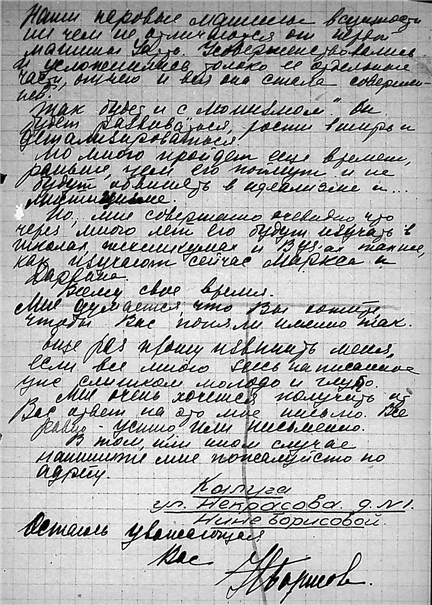 Наши паровые машины в сущности
ни чем не отличаются от первой
машины Уатт. Усовершенствовались
и усложнились только ее отдельные
части, отчего и вся она стала совершен-
ней.
"Так будет и с монизмом." Он
будет развиваться, расти вширь и
детализироваться.
Но много пройдет еще времени,
раньше, чем его поймут и не
будут обвинять в идеализме и...
мистицизме.
Но, мне совершенно очевидно что
через много лет его будут изучать в
школах, техникумах и Вузах также,
как изучают сейчас Маркса и
Дарвина.
Всему свое время.
Мне думается, что Вы хотите,
чтобы Вас поняли именно так.
Еще раз прошу извинить меня,
если все мною здесь написанное
уже слишком молодо и глупо.
Мне очень хочется получить от
Вас ответ на это мое письмо. Все
равно - устно или письменно.
В том или ином случае
напишите мне пожалуйста по
адресу.
Калуга
ул. Некрасова д. №1.
Нине Борисовой.
Остаюсь уважающая
Вас
НБорисов.